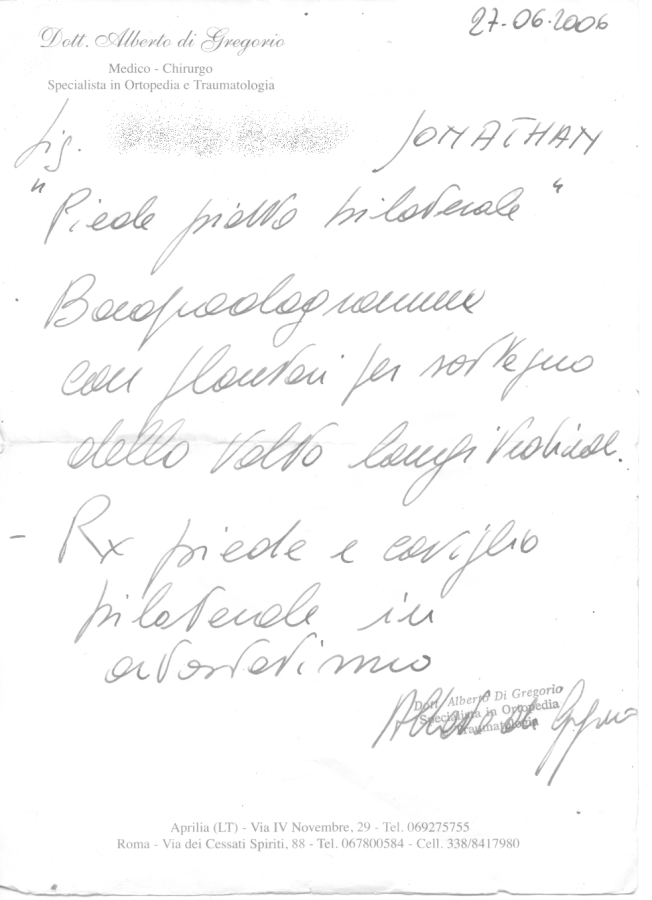 27.06.2006
Dott. Alberto di Gregorio
Medico - Chirurgo
Specialista in Ortopedia e Traumatologia
Sig. JONATHAN
"Piede piatto bilaterale"
Baropodogramma
con plantari per sostegno
della volta longitudinale.
- Rx piede e caviglia
bilaterale in
ortostatismo
Dott. Alberto Di Gregorio
Specialista in Ortopedia
Traumatologia
Aprilia (LT) - Via IV Novembre, 29 - Tel. 069275755
Roma - Via dei Cessati Spiriti, 88 - Tel. 067800584 - Cell. 338/8417980